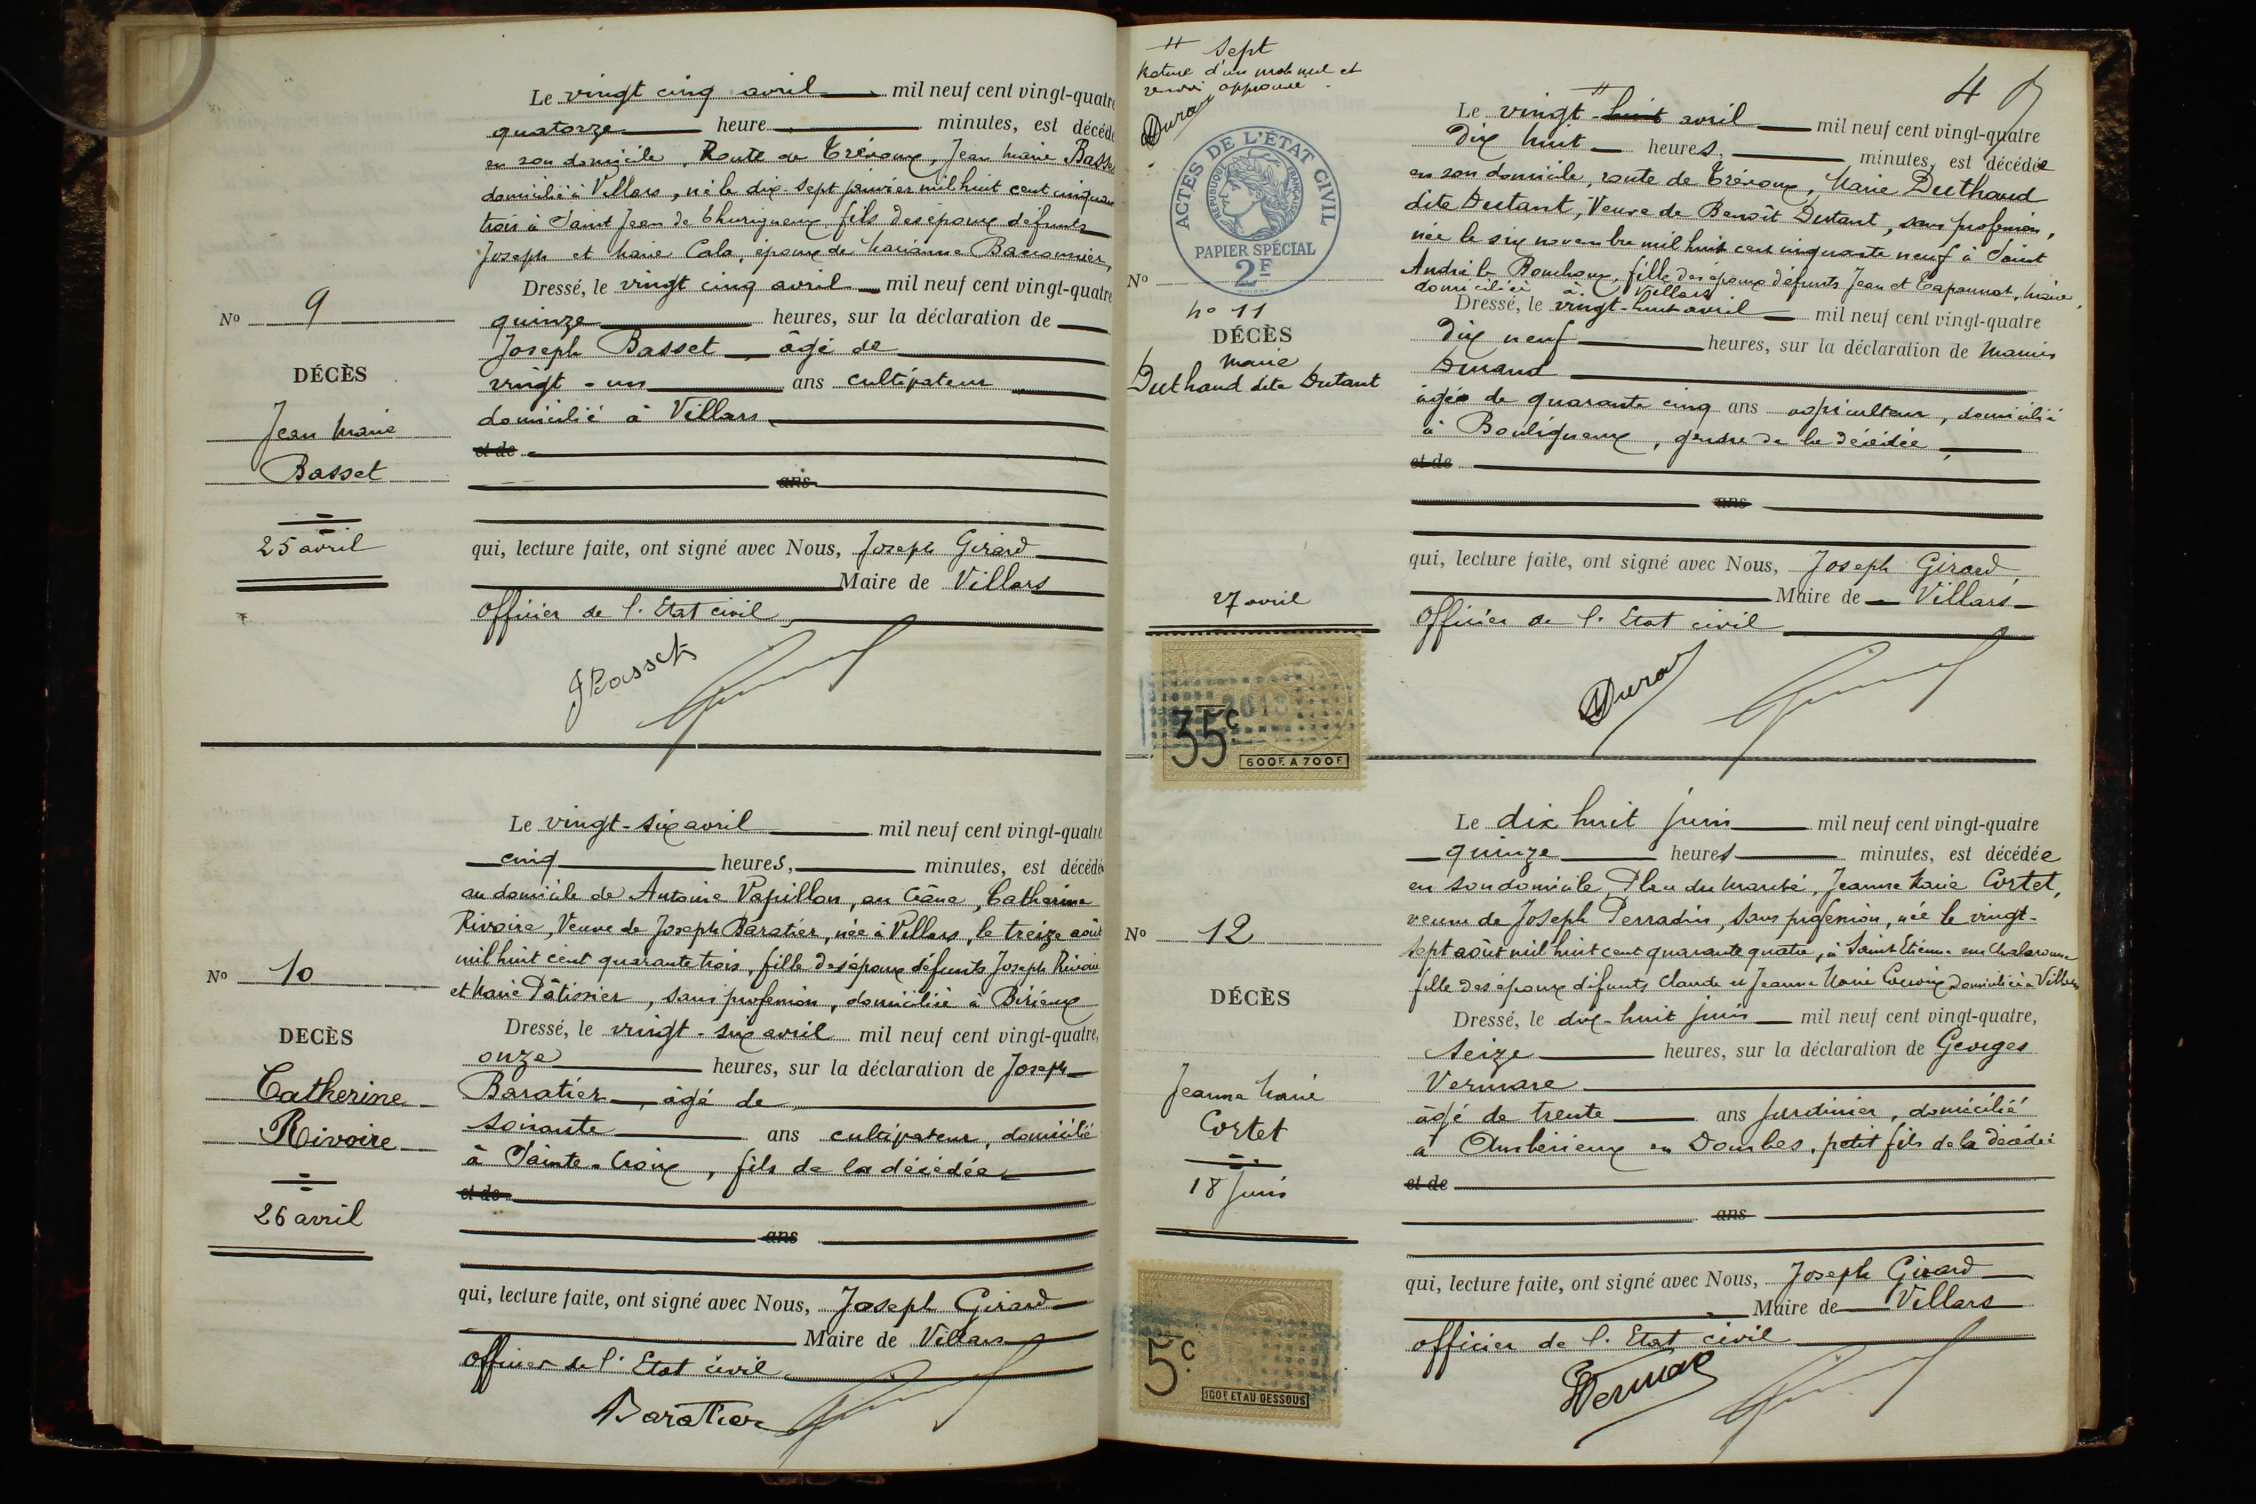 Le vingt cinq avril mil neuf cent vingt-quatre
quatorze heure minutes, est décédé
en son domicile, Route de Trévoux, Jean Marie Basset
domicilié à Villars, né le dix-sept janvier mil huit cent cinquante
trois à Saint Jean de Thurigneux, fils des époux défunts
Joseph et Marie Cala, époux de Marianne
Dressé, le vingt cinq avril mil neuf cent vingt-quatre
No 9
quinze heures, sur la déclaration de
Joseph Basset, âgé de
DÉCÈS
vingt-un ans cultivateur
domicilié à Villars
Jean Marie
et de
Basset
ans
25 avril
qui, lecture faite, ont signé avec Nous, Joseph Girard
Maire de Villars
officier de l'Etat civil
JBasset
Le vingt-six avril mil neuf cent vingt-quatre
cinq heures, minutes, est décédée
au domicile de Antoine Papillon, au Crâne, Catherine
Rivoire, Veuve de Joseph Baratier, née à Villars, le treize août
mil huit cent quarante trois, fille des époux défunts Joseph Rivoire
No 10
et Marie Pâtissier, sans profession, domiciliée à Birieux
Dressé, le vingt-six avril mil neuf cent vingt-quatre,
DECÈS
onze heures, sur la déclaration de Joseph
Catherine
Baratier, âgé de
Rivoire
soixante ans cultivateur, domicilié
à Sainte-Croix, fils de la décédée
et de
26 avril
ans
qui, lecture faite, ont signé avec Nous, Joseph Girard
Maire de Villars
officier de l'Etat civil
Baratier
4
sept
Rature d'un mot nul et
renvoi approuvé.
Duran
ACTES DE L'ÉTAT CIVIL
RÉPUBLIQUE FRANÇAISE
PAPIER SPÉCIAL
2F
Le vingt-huit avril mil neuf cent vingt-quatre
Dix huit heures, minutes, est décédée
en son domicile, route de Trévoux, Marie Duthaud
dite Dutant, Veuve de Benoît Dutant, sans profession,
née le six novembre mil huit cent cinquante neuf à Saint
André le Bouchoux, fille des époux défunts Jean et Marie,
domiciliée à Villars
No
no 11
Dressé, le vingt-huit avril mil neuf cent vingt-quatre
DÉCÈS
Marie
Duthaud dite Dutant
Dix neuf heures, sur la déclaration de
Durand
âgé de quarante cinq ans agriculteur, domicilié
à Bouligneux, gendre de la décédée,
et de
ans
qui, lecture faite, ont signé avec Nous, Joseph Girard,
27 avril
Maire de Villars
officier de l'Etat civil
Duran
35c
600F. A 700F
Le dix huit juin mil neuf cent vingt-quatre
quinze heures minutes, est décédée
en son domicile, Place du Marché, Jeanne Marie Cortet,
veuve de Joseph Perradin, sans profession, née le vingt-
sept août mil huit cent quarante quatre, à Saint Etienne sur Chalaronne
No 12
fille des époux défunts Claude et Jeanne Marie domiciliée à Villars
DÉCÈS
Dressé, le dix-huit juin mil neuf cent vingt-quatre,
seize heures, sur la déclaration de Georges
Vermare
Jeanne Marie
âgé de trente ans jardinier, domicilié
Cortet
à Ambérieux en Dombes, petit fils de la décédée
18 Juin
et de
ans
qui, lecture faite, ont signé avec Nous, Joseph Girard
Maire de Villars
officier de l'Etat civil
5c
100F ET AU DESSOUS